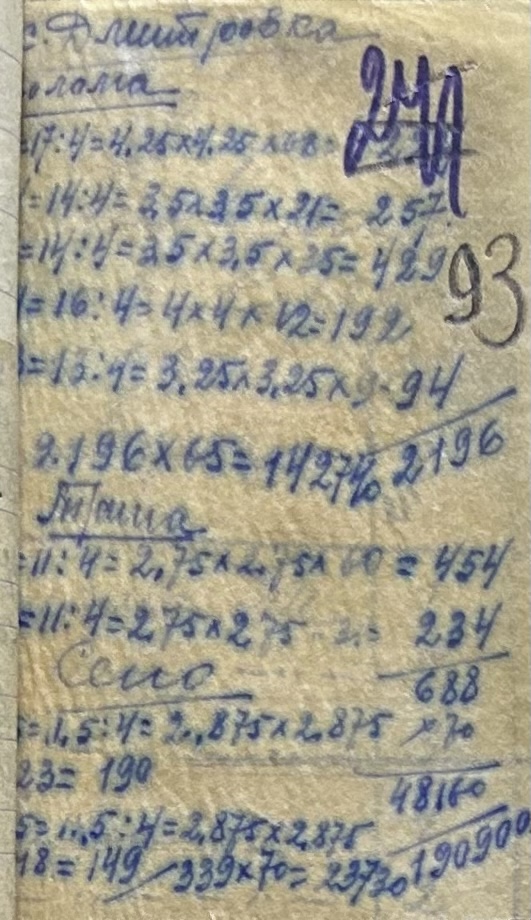 с. Дмитровка
олома
244
=17:4=4,25×4,25×68=
=14:4=3,5×3,5×21= 257
=14:4=3,5×3,5×35=429
93
=16:4=4×4×12=192
=13:4=3,25×3,25×9= 94
2196
2.196×65=14274
=11:4=2,75×2,75×60 = 454
=11:4=2,75×2,75 234
688
Сено
=11,5:4=2,875×2,875 ×70
23= 190
48160
5=11,5:4=2,875×2,875
18=149 339×70=23730 190900